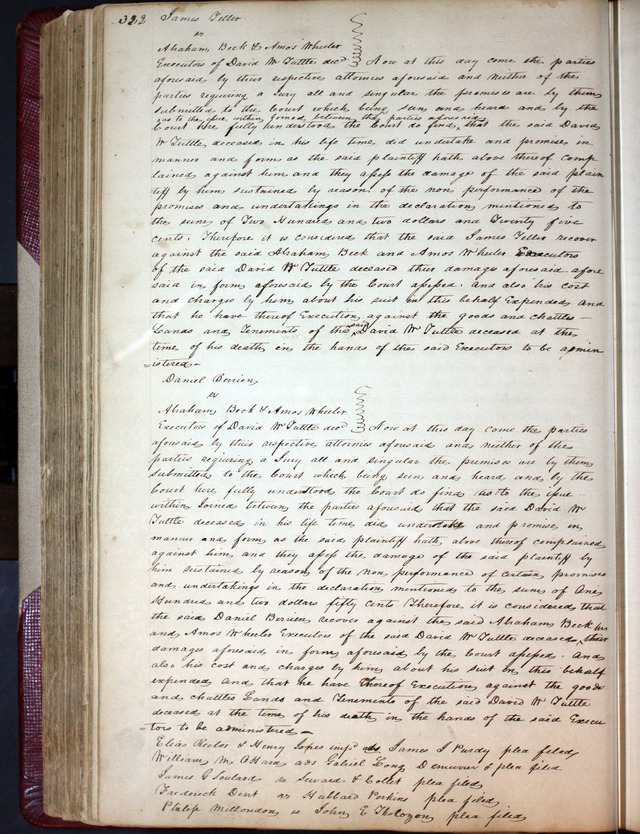 322 James Teller
vs
Abraham Beck & Amos Wheeler
Executors of David W Tuttle decd Now at this day come the parties
aforesaid by their respective attornies aforesaid and Neither of the
parties requiring a Jury all and singular the premises are by them
submitted to the Court which being seen and heard and by the
as to the issue within joined between the parties aforesaid
Court here fully understood the Court do find, that the said David
W Tuttle, deceased in his life time did undertake and promise in
manner and form as the said plaintiff hath above thereof comp
lained against him and they assess the damage of the said plain
tiff by him sustained by reason of the non performance of the
promises and undertakings in the declaration mentioned to
the sum of Two Hundred and two dollars and Twenty five
cents. Therefore it is considered that the said James Teller recover
against the said Abraham Beck and Amos Wheeler Executors
of the said David W Tuttle deceased their damages aforesaid afore
said in form aforesaid by the Court assessed and also his cost
and charges by him about his suit in this behalf Expended and
that he have thereof Execution against the goods and chattles
Lands and Tenements of the said David W Tuttle deceased at the
time of his death in the hands of the said Executors to be admin
istered
Daniel Berrien
vs
Abraham Beck & Amos Wheeler
Executors of David W Tuttle decd Now at this day come the parties
aforesaid by their respective attornies aforesaid and neither of the
parties requiring a Jury all and singular the premises are by them
submitted to the Court which being seen and heard and by the
Court here fully understood the Court do find as to the issue
within Joined between the parties aforesaid that the said David W
Tuttle deceased in his life time did undertake and promise in
manner and form as the said plaintiff hath above thereof complained
against him and they assess the damage of the said plaintiff by
him sustained by reason of the non performance of certain promises
and undertakings in the declaration mentioned to the sum of One
Hundred and two dollars fifty cents Therefore it is considered that
the said Daniel Berrien recover against the said Abraham Beck
and Amos Wheeler Executors of the said David W Tuttle deceased their
damages aforesaid in form aforesaid by the Court assessed. And
also his cost and charges by him about his suit in this behalf
expended and that he have thereof Execution against the goods
and chattles Lands and Tenements of the said David W Tuttle
deceased at the time of his death in the hands of the said Execu
tors to be administered
Elias Rector & Henry ads James S Purdy plea filed
William M ads Gabriel Long Demurrer & plea filed
James G Soulard vs Seward & Collet plea filed
Frederick Dent ads Hubbard Perkins plea filed
Philip Milloudon vs John E Tholozon plea filed